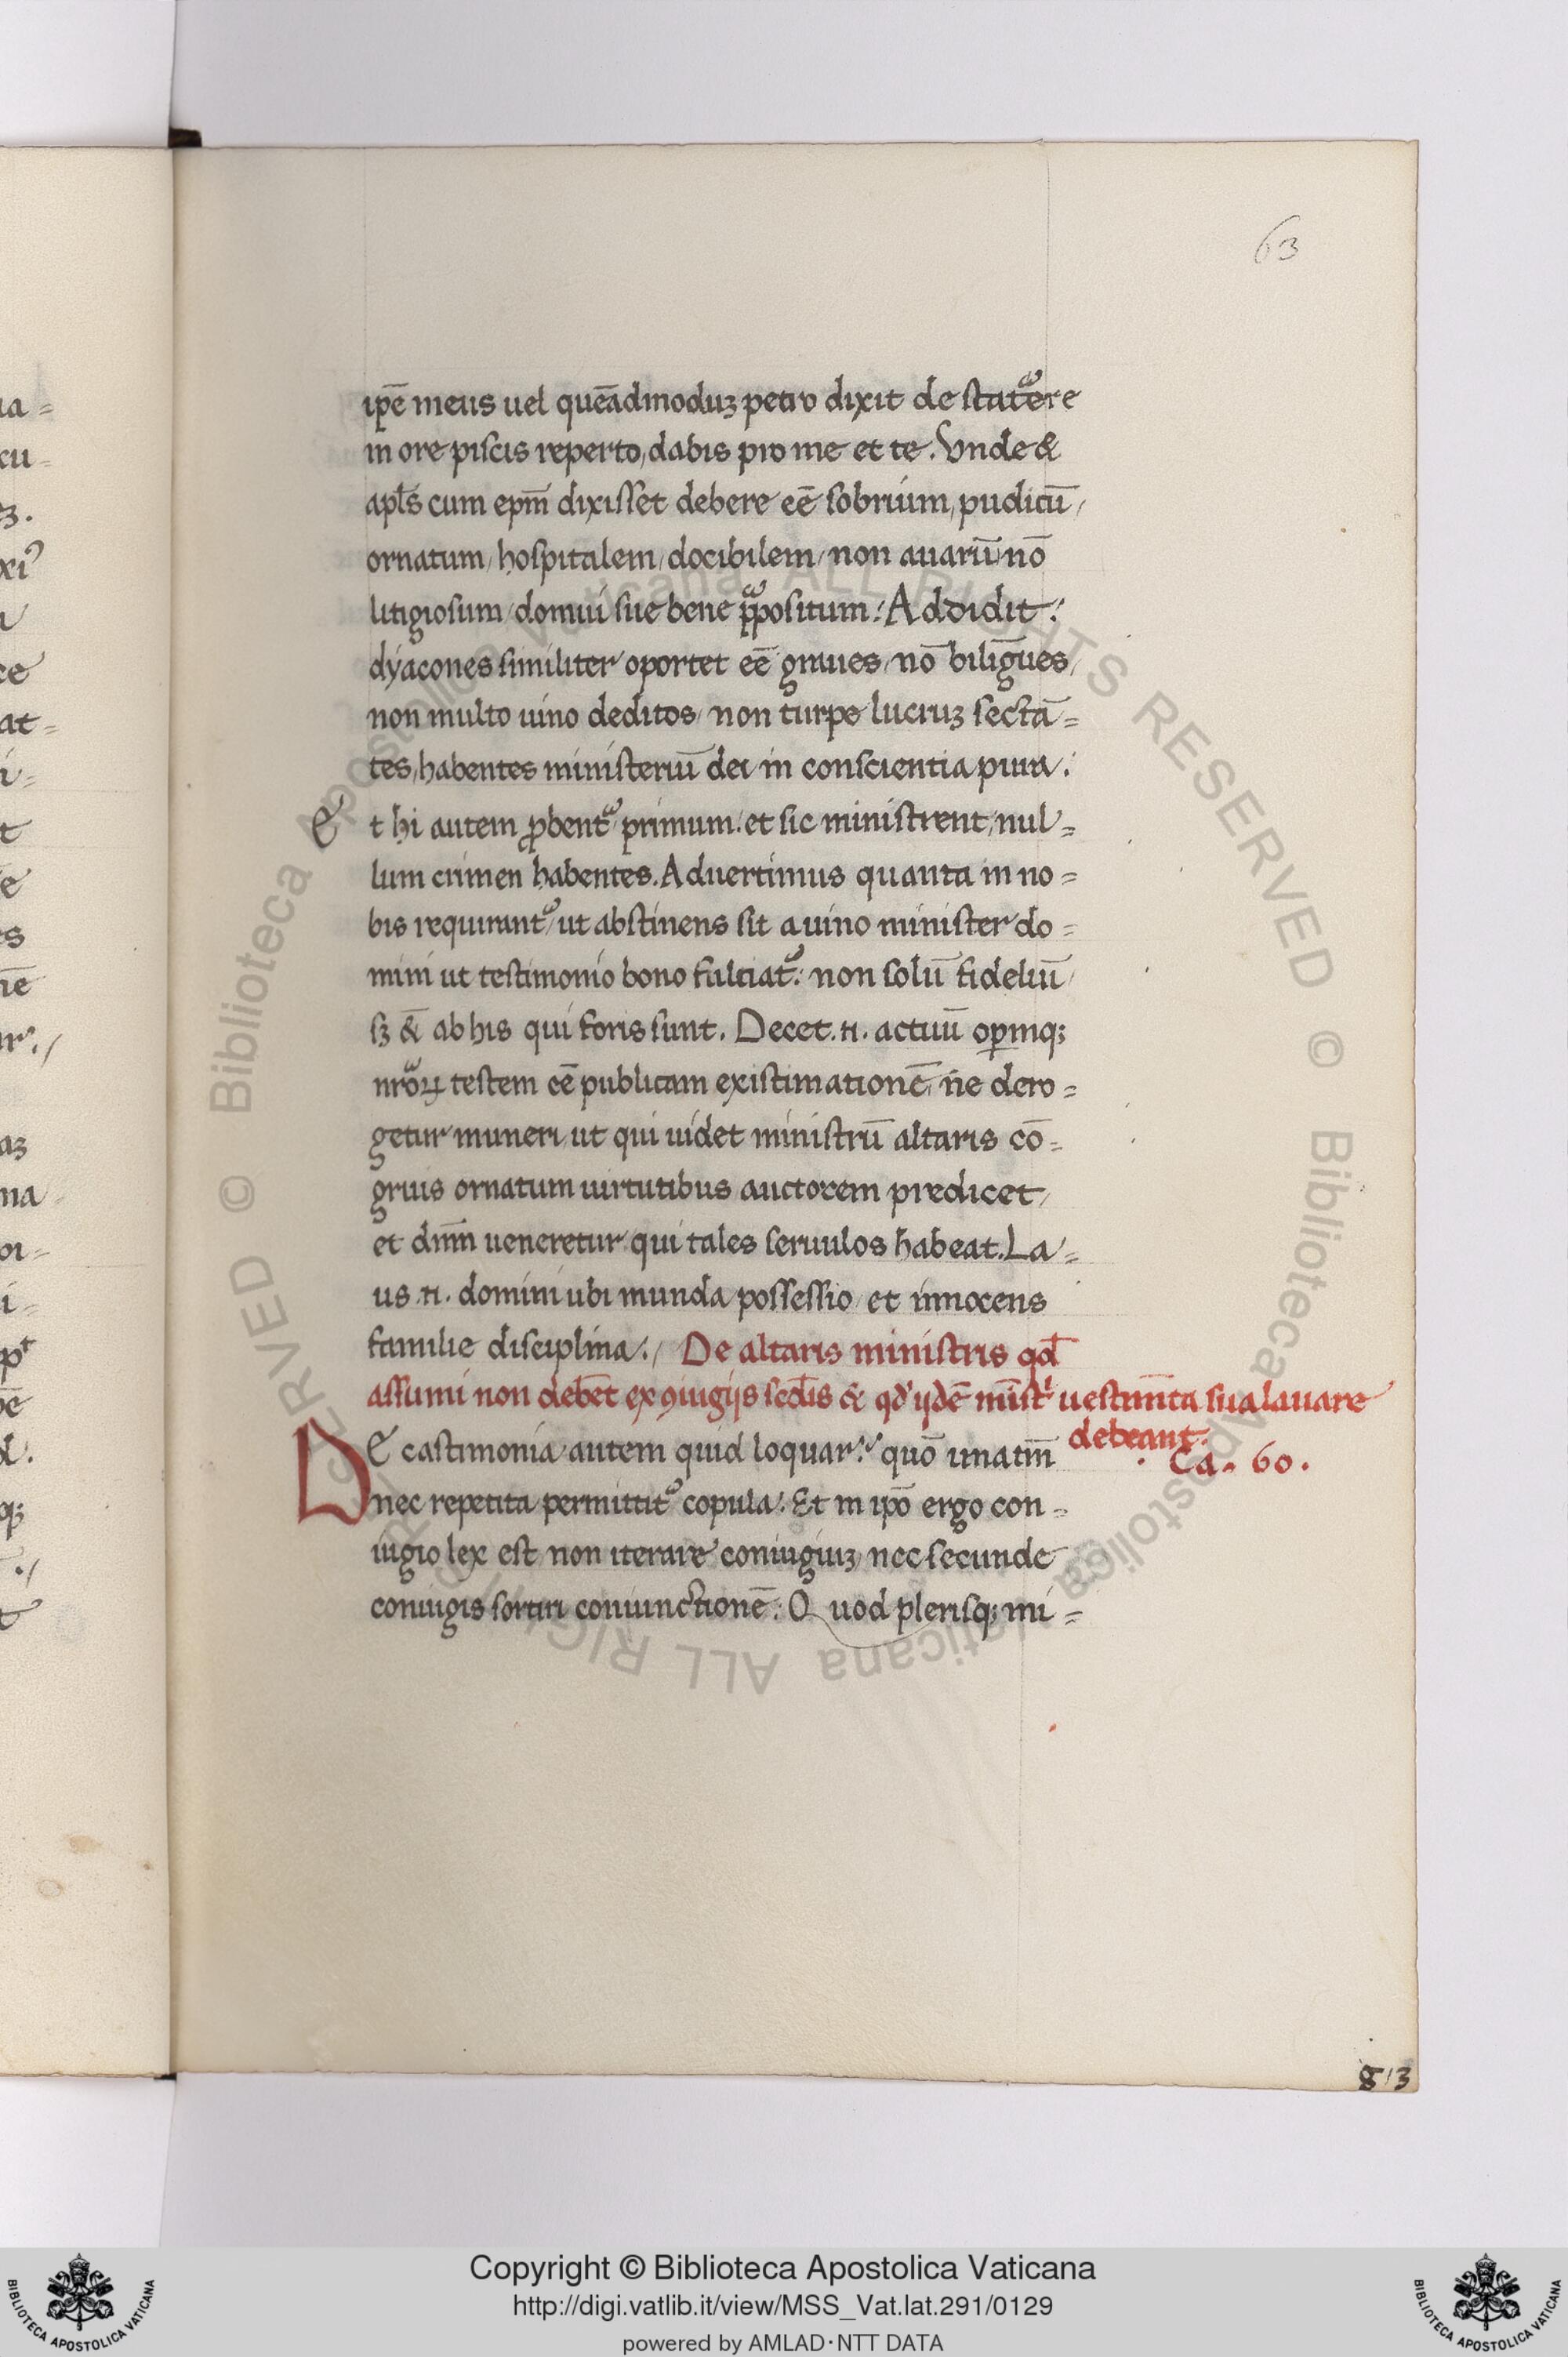 63
ip̄e meus uel quēadmoduꝫ petro dixit de statere
in ore piscis reperto, dabis pro me et te. Vnde &
apl̄s cum ep̄m dixisset debere eē sobrium, pudicū,
ornatum, hospitalem, docibilem, non auarū nō
litigiosum, domui sue bene p̄positum: Addidit:
dyacones similiter oportet eē graues, nō bilīgues,
non multo uino deditos, non turpe lucruꝫ sectā=
tes, habentes ministeriū dei in conscientia pura.
Et hi autem ꝓbent᷑ primum. et sic ministrent, nul=
lum crimen habentes. Aduertimus quanta in no=
bis requirant᷑, ut abstinens sit a uino minister do=
mini ut testimonio bono fulciat᷑: non solū fideliū,
sꝫ & ab his qui foris sunt. Decet .n. actuū oꝑmqꝫ
nr̄oꝝ testem eē publicam existimationē, ne dero=
getur muneri, ut qui uidet ministrū altaris cō=
gruis ornatum uirtutibus auctorem predicet,
et dn̄m ueneretur qui tales seruulos habeat. La=
us .n. domini ubi munda possessio, et innocens
familie disciplina. De altaris ministris qđ
assumi non debēt ex ꝯiugijs secd̄is & qđ ijdē minist̄ uestim̄ta sua lauare
debeant.
Ca. 60.
De castimonia autem quid loquar: quō una tm̄
nec repetita permittit᷑ copula. Et in ip̄o ergo con=
iugio lex est, non iterare coniugiuꝫ, nec secunde
coniugis sortiri coniunctionē: Quod plerisqꝫ mi=
813
Copyright © Biblioteca Apostolica Vaticana
http://digi.vatlib.it/view/MSS_Vat.lat.291/0129
powered by AMLAD·NTT DATA